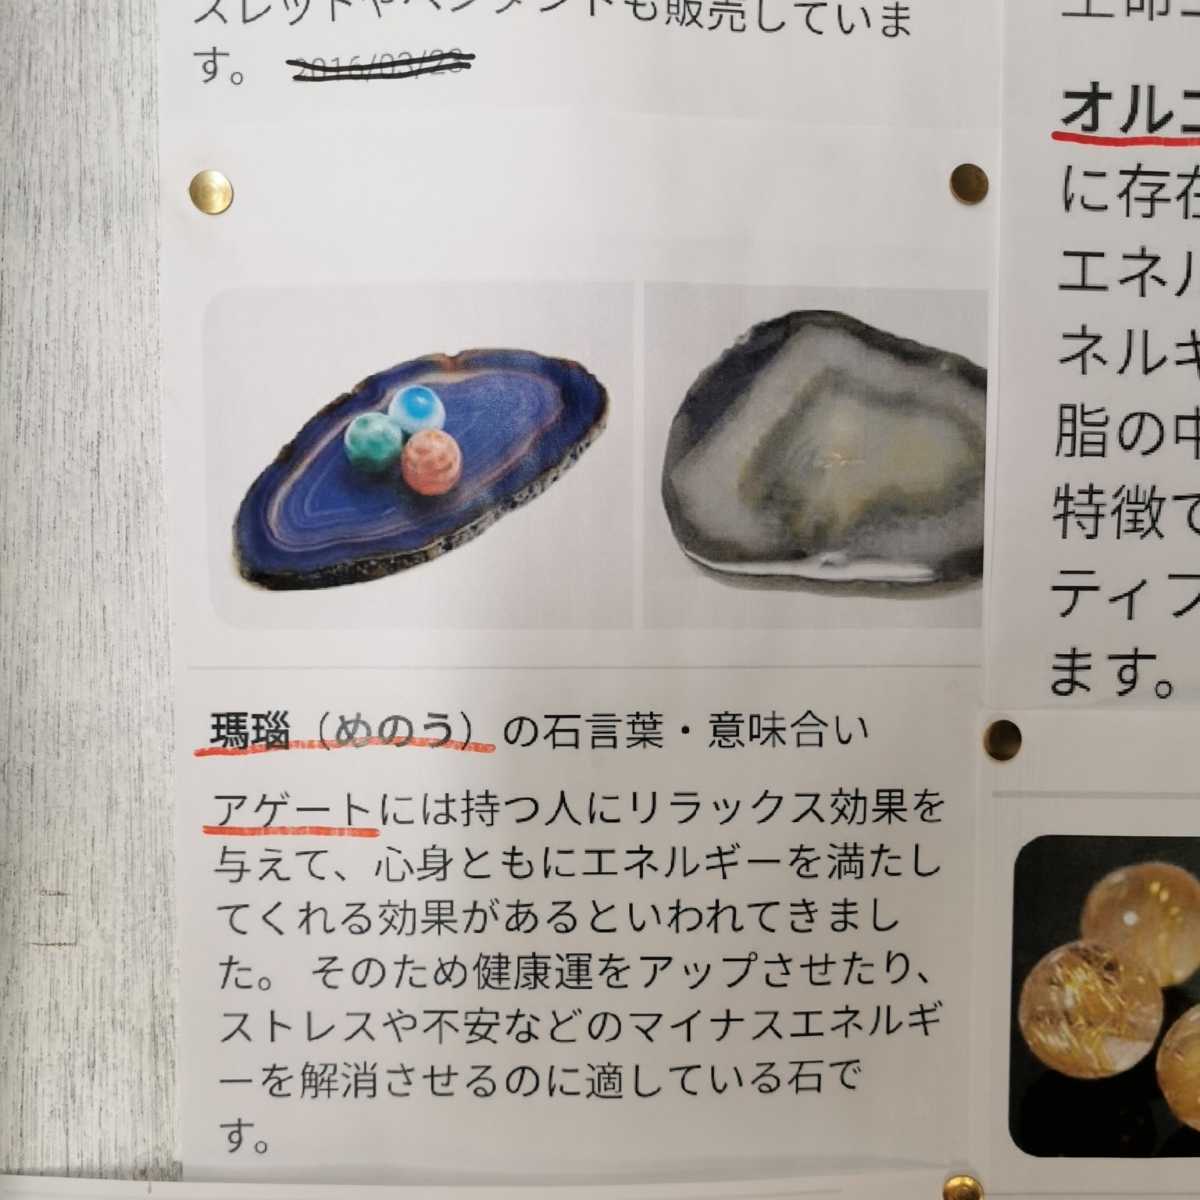 スレットやペンダントも販売していま
す。 2016/03/28
瑪瑙（めのう）の石言葉・意味合い
アゲートには持つ人にリラックス効果を
与えて、心身ともにエネルギーを満たし
てくれる効果があるといわれてきまし
た。 そのため健康運をアップさせたり、
ストレスや不安などのマイナスエネルギ
ーを解消させるのに適している石で
す。
オルゴ
に存在
エネル
ネルギ
脂の中
特徴で
ティブ
ます。